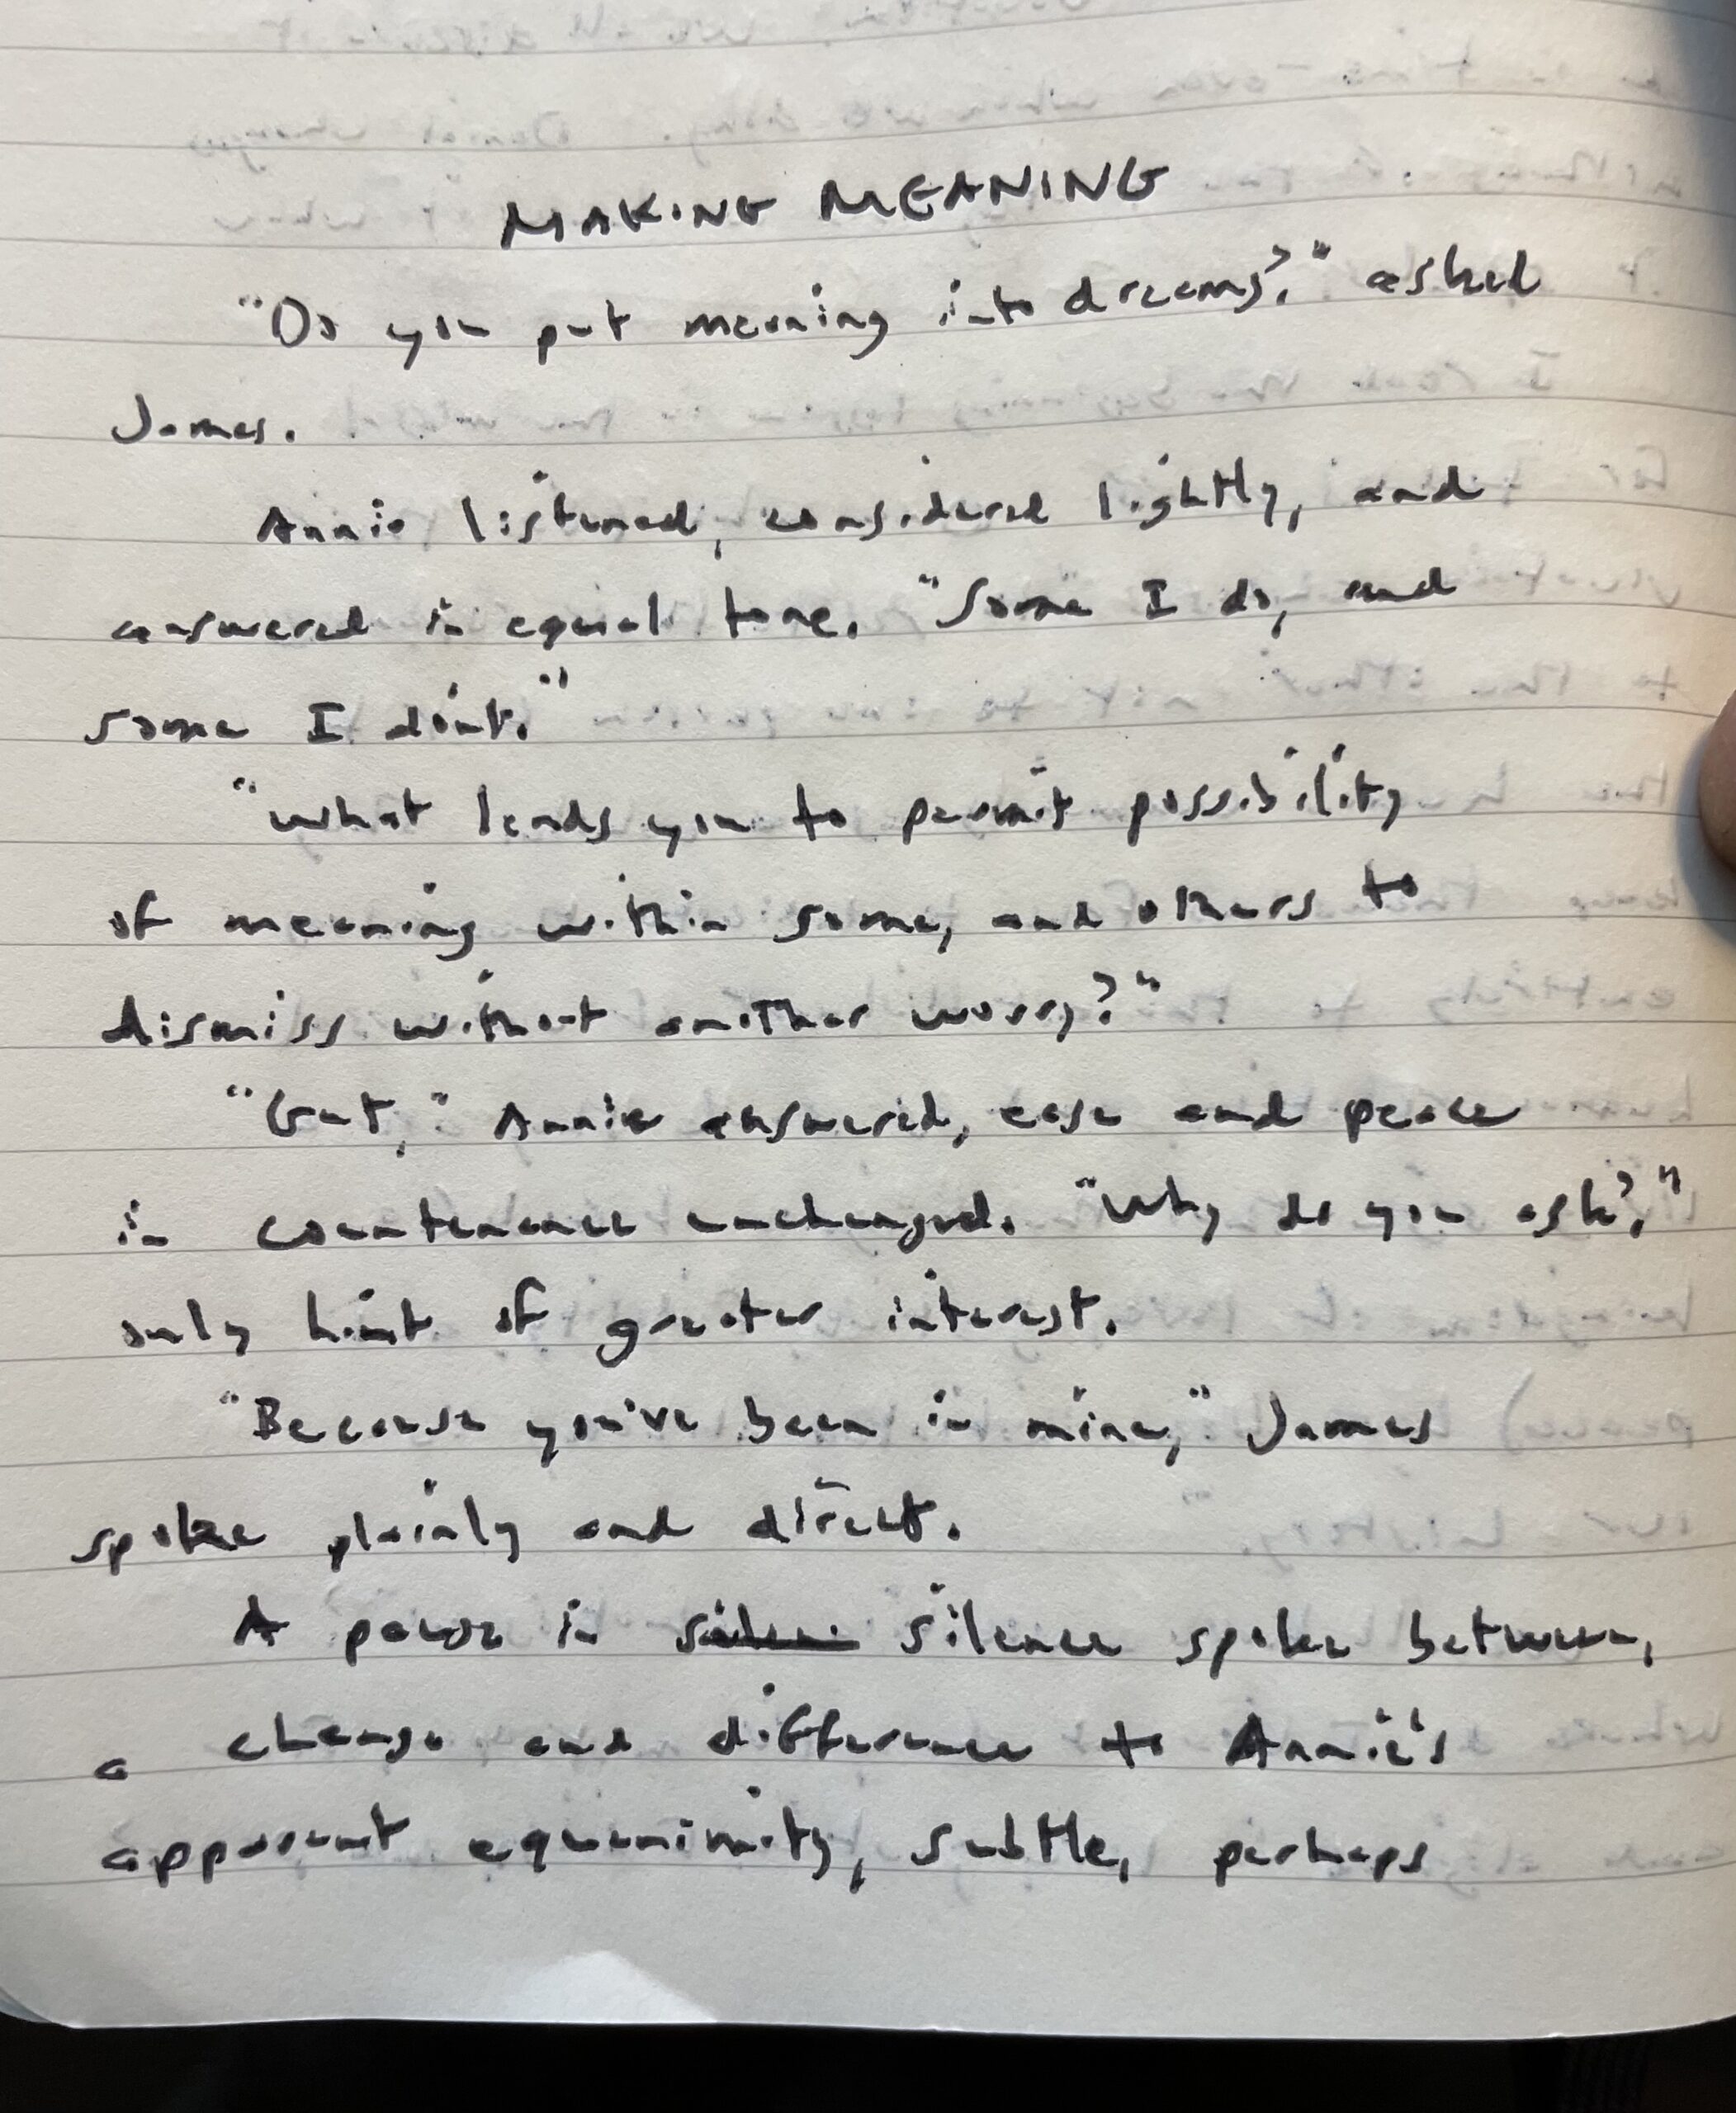 MAKING MEANING
"Do you put meaning into dreams?" asked
James.
Annie listened, considered lightly, and
answered in equal tone. "Some I do, and
some I don't."
"What leads you to permit possibility
of meaning within some, and others to
dismiss without another worry?"
"Gut," Annie answered, ease and peace
in countenance unchanged. "Why do you ask?"
only hint of greater interest.
"Because you've been in mine," James
spoke plainly and direct.
A pause in silence spoke between,
a change and difference to Annie's
apparent equanimity, subtle, perhaps